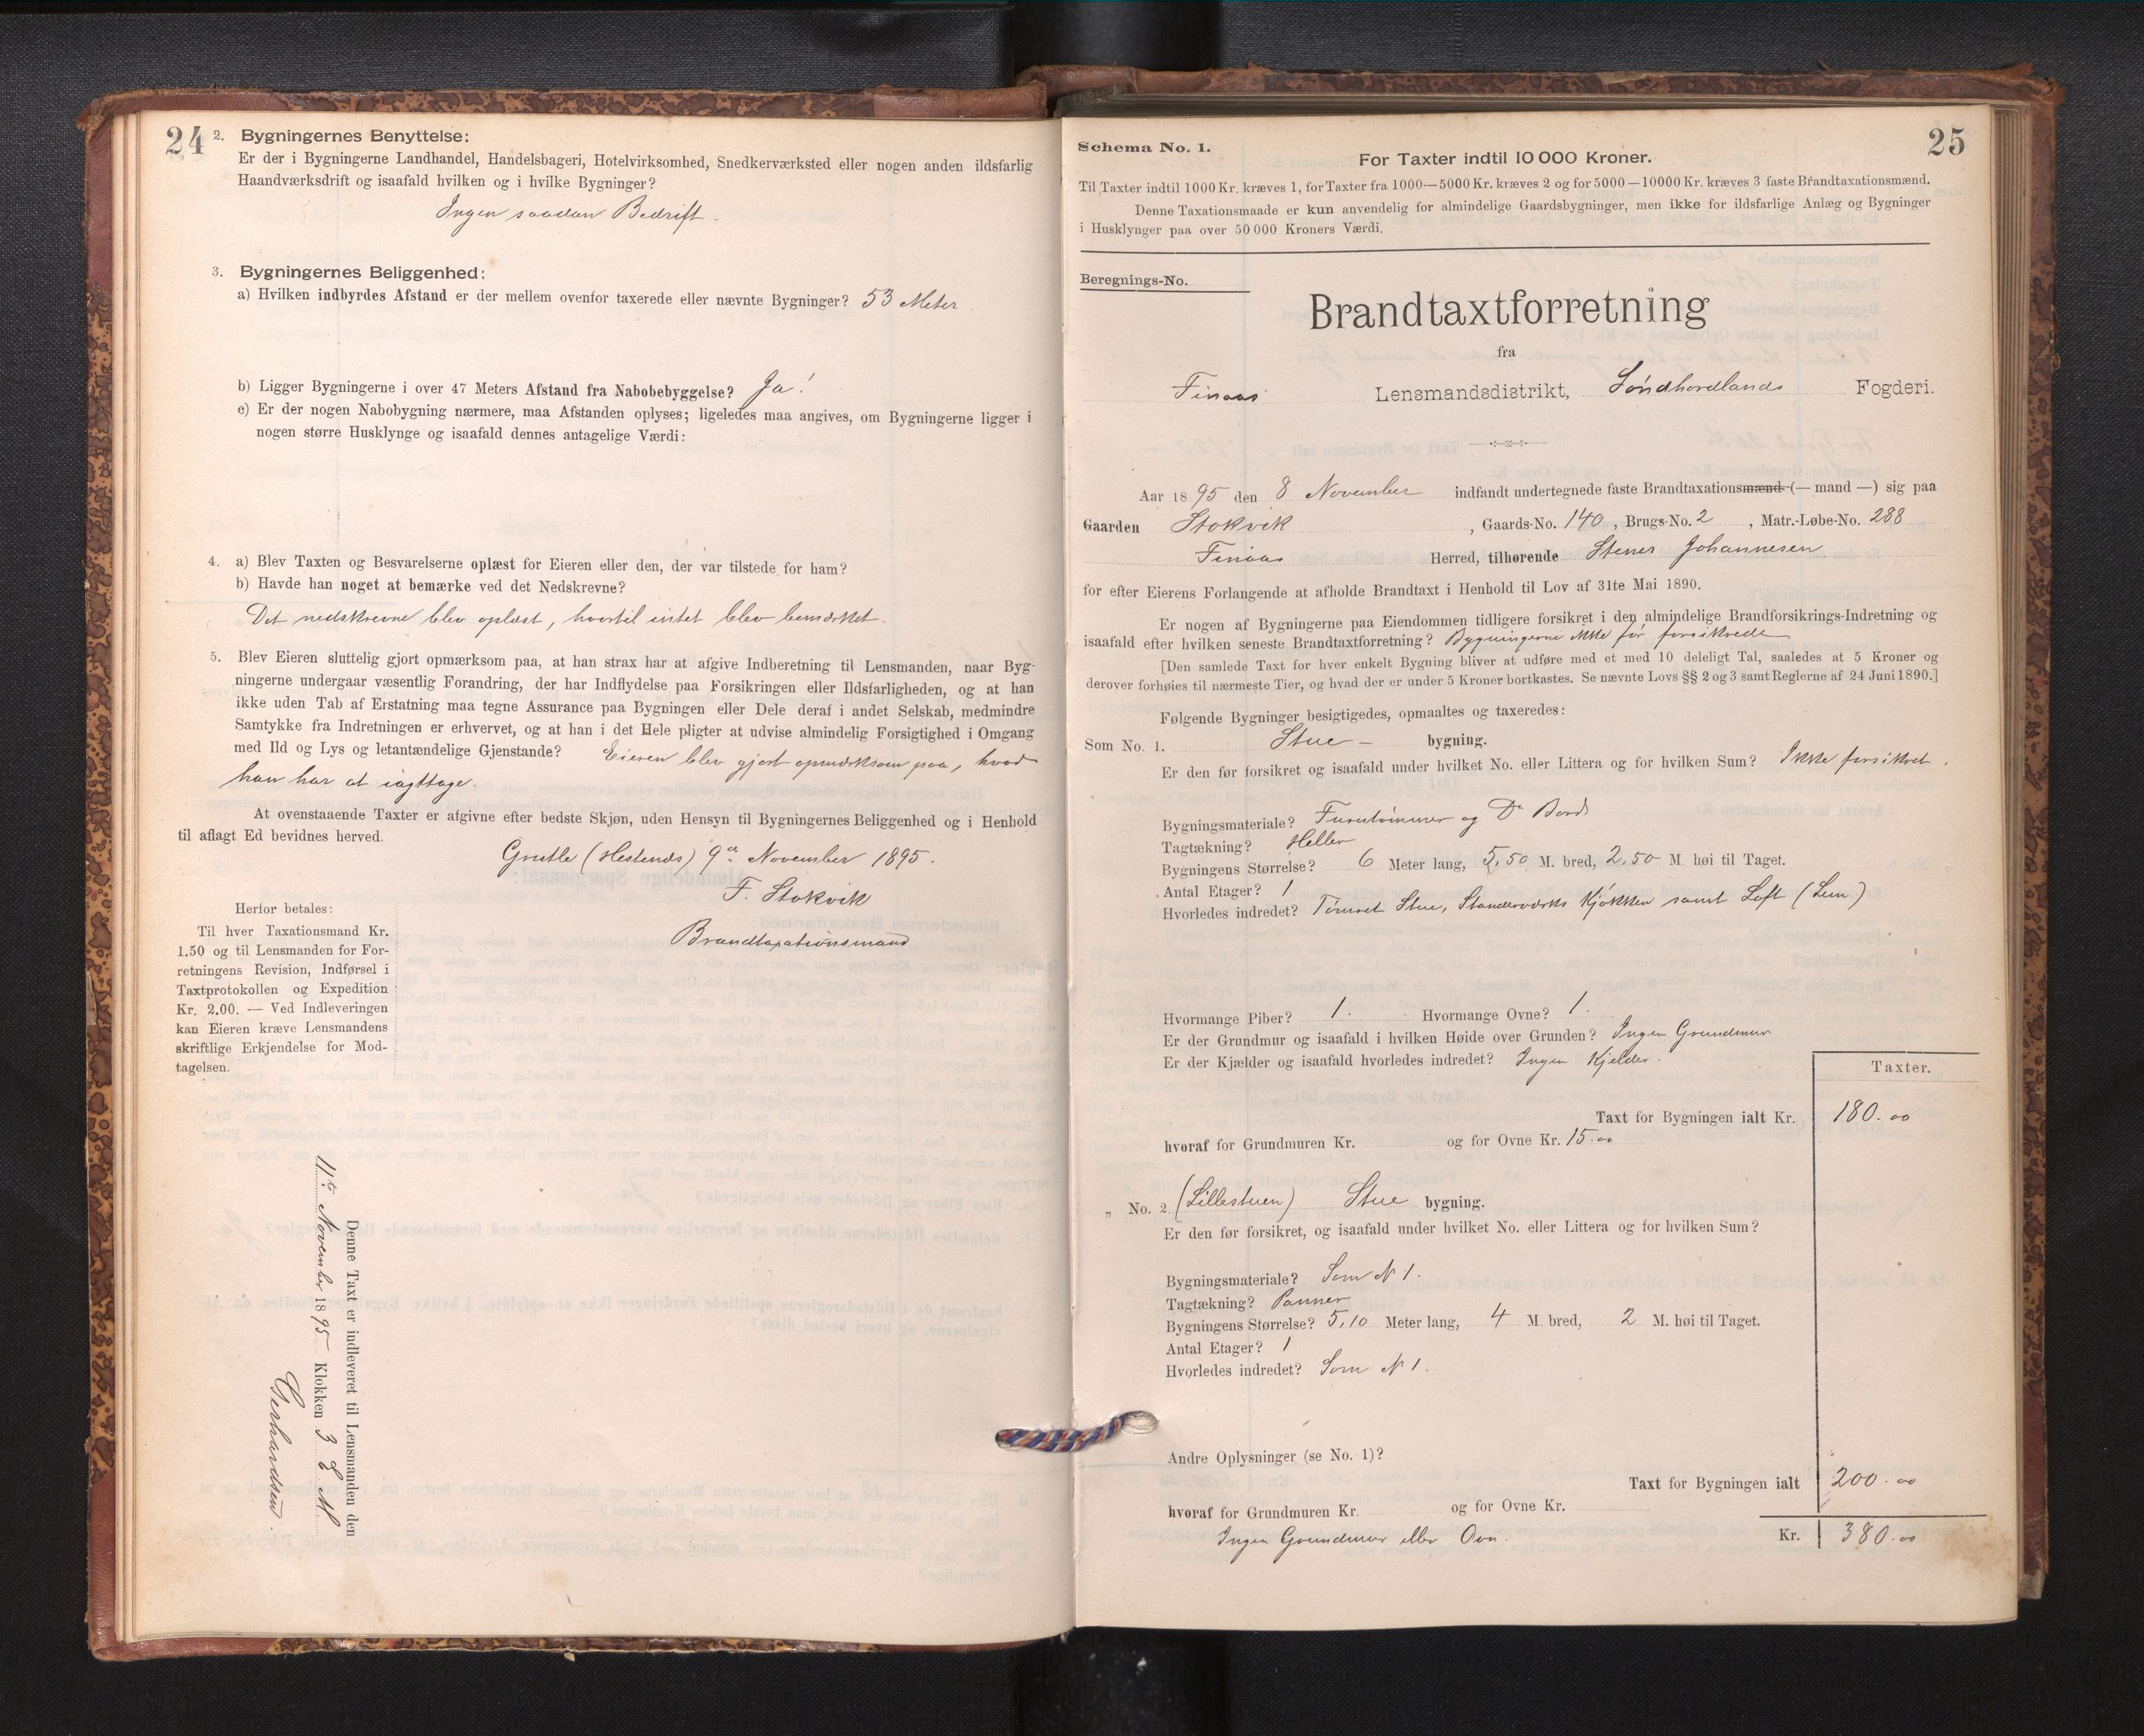 24
2. Bygningernes Benyttelse:
Er der i Bygningerne Landhandel, Handelsbageri, Hotelvirksomhed, Snedkerværksted eller nogen anden ildsfarlig
Haandværksdrift og isaafald hvilken og i hvilke Bygninger?
Ingen saadan Bedrift.
3. Bygningernes Beliggenhed:
a) Hvilken indbyrdes Afstand er der mellem ovenfor taxerede eller nævnte Bygninger? 53 Meter
b) Ligger Bygningerne i over 47 Meters Afstand fra Nabobebyggelse? Ja!
c) Er der nogen Nabobygning nærmere, maa Afstanden oplyses; ligeledes maa angives, om Bygningerne ligger i
nogen større Husklynge og isaafald dennes antagelige Værdi:
4. a) Blev Taxten og Besvarelserne oplæst for Eieren eller den, der var tilstede for ham?
b) Havde han noget at bemærke ved det Nedskrevne?
Det nedskrevne blev oplæst, hvortil intet blev bemærket.
5. Blev Eieren sluttelig gjort opmærksom paa, at han strax har at afgive Indberetning til Lensmanden, naar Byg-
ningerne undergaar væsentlig Forandring, der har Indflydelse paa Forsikringen eller Ildsfarligheden, og at han
ikke uden Tab af Erstatning maa tegne Assurance paa Bygningen eller Dele deraf i andet Selskab, medmindre
Samtykke fra Indretningen er erhvervet, og at han i det Hele pligter at udvise almindelig Forsigtighed i Omgang
med Ild og Lys og letantændelige Gjenstande? Eieren blev gjort opmærksom paa, hvad
han har at iagttage.
At ovenstaaende Taxter er afgivne efter bedste Skjøn, uden Hensyn til Bygningernes Beliggenhed og i Henhold
til aflagt Ed bevidnes herved.
Grutle (Hestenes) 9de November 1895.
F. Stokvik
Brandtaxationsmand
Herfor betales:
Til hver Taxationsmand Kr.
1.50 og til Lensmanden for For-
retningens Revision, Indførsel i
Taxtprotokollen og Expedition
Kr. 2.00. — Ved Indleveringen
kan Eieren kræve Lensmandens
skriftlige Erkjendelse for Mod-
tagelsen.
Denne Taxt er indleveret til Lensmanden den
11te November 1895 Klokken 3 E. M.
Gerhardsen.
25
Schema No. 1.
For Taxter indtil 10 000 Kroner.
Til Taxter indtil 1000 Kr. kræves 1, for Taxter fra 1000—5000 Kr. kræves 2 og for 5000—10000 Kr. kræves 3 faste Brandtaxationsmænd.
Denne Taxationsmaade er kun anvendelig for almindelige Gaardsbygninger, men ikke for ildsfarlige Anlæg og Bygninger
i Husklynger paa over 50 000 Kroners Værdi.
Beregnings-No.
Brandtaxtforretning
fra
Finaas Lensmandsdistrikt, Søndhordlands Fogderi.
Aar 1895 den 8 November indfandt undertegnede faste Brandtaxationsmænd (— mand —) sig paa
Gaarden Stokvik, Gaards-No. 140, Brugs-No. 2, Matr.-Løbe-No. 288
Finaas Herred, tilhørende Stener Johannesen
for efter Eierens Forlangende at afholde Brandtaxt i Henhold til Lov af 31te Mai 1890.
Er nogen af Bygningerne paa Eiendommen tidligere forsikret i den almindelige Brandforsikrings-Indretning og
isaafald efter hvilken seneste Brandtaxtforretning? Bygningerne ikke før forsikrede
[Den samlede Taxt for hver enkelt Bygning bliver at udføre med et med 10 deleligt Tal, saaledes at 5 Kroner og
derover forhøies til nærmeste Tier, og hvad der er under 5 Kroner bortkastes. Se nævnte Lovs §§ 2 og 3 samt Reglerne af 24 Juni 1890.]
Følgende Bygninger besigtigedes, opmaaltes og taxeredes:
Som No. 1. Stue — bygning.
Er den før forsikret og isaafald under hvilket No. eller Littera og for hvilken Sum? Ikke forsikret.
Bygningsmateriale? Furutømmer og Do Bord
Tagtækning? Heller
Bygningens Størrelse? 6 Meter lang, 5,50 M. bred, 2,50 M. høi til Taget.
Antal Etager? 1
Hvorledes indredet? Tømret Stue, Standerværks Kjøkken samt Loft (Lem)
Hvormange Piber? 1. Hvormange Ovne? 1.
Er der Grundmur og isaafald i hvilken Høide over Grunden? Ingen Grundmur
Er der Kjælder og isaafald hvorledes indredet? Ingen Kjelder.
Taxter.
Taxt for Bygningen ialt Kr. 180.00
hvoraf for Grundmuren Kr. og for Ovne Kr. 15.00
„ No. 2 (Lillestuen) Stue bygning.
Er den før forsikret, og isaafald under hvilket No. eller Littera og for hvilken Sum?
Bygningsmateriale? Som N 1.
Tagtækning? Panner
Bygningens Størrelse? 5,10 Meter lang, 4 M. bred, 2 M. høi til Taget.
Antal Etager? 1
Hvorledes indredet? Som N 1.
Andre Oplysninger (se No. 1)?
Taxt for Bygningen ialt 200.00
hvoraf for Grundmuren Kr. og for Ovne Kr.
Ingen Grundmur eller Ovn.
Kr. 380.00